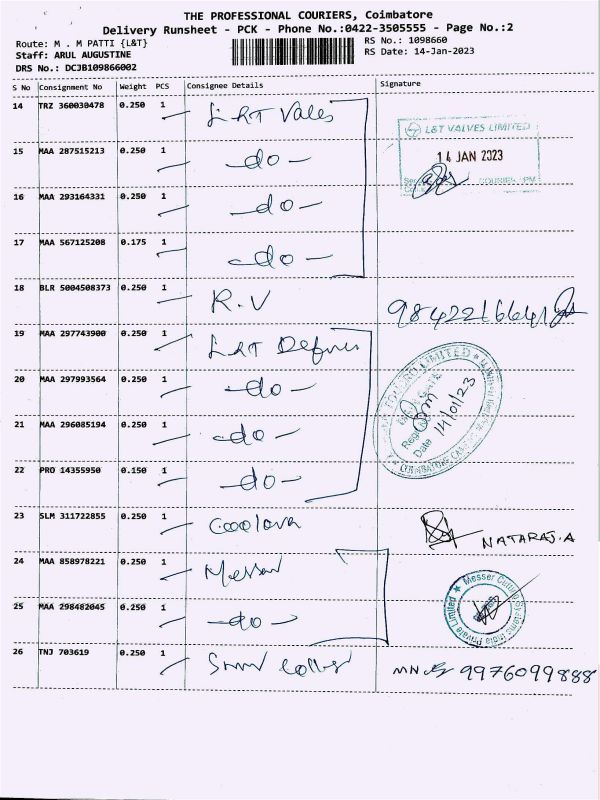 THE PROFESSIONAL COURIERS, Coimbatore
Delivery Runsheet - PCK - Phone No.:0422-3505555 - Page No.:2
Route: M . M PATTI {L&T}
RS No.: 1098660
Staff: ARUL AUGUSTINE
RS Date: 14-Jan-2023
DRS No.: DCJB109866002
S No Consignment No Weight PCS Consignee Details Signature
14 TRZ 360030478 0.250 1 L&T Valves
L&T VALVES LIMITED
14 JAN 2023
15 MAA 287515213 0.250 1 -do-
16 MAA 293164331 0.250 1 -do-
17 MAA 567125208 0.175 1 -do-
18 BLR 5004508373 0.250 1 R.V 9842216641
19 MAA 297743900 0.250 1 L&T Defence
20 MAA 297993564 0.250 1 -do-
14/01/23
Date
21 MAA 296085194 0.250 1 -do-
22 PRO 14355950 0.150 1 -do-
23 SLM 311722855 0.250 1
NATARAJ.A
24 MAA 858978221 0.250 1 Messer
Messer Cutting Systems India Private Limited
25 MAA 298482045 0.250 1 -do-
26 TNJ 703619 0.250 1 9976099888